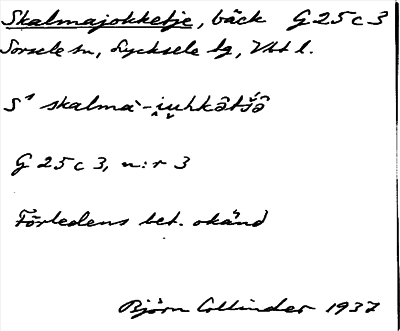 Skalmajokketje, bäck G 25 c 3
Sorsele sn, Lycksele lg, Vbt l.
S¹ skalma`-i̭uhkåtšå
G 25 c 3, n:r 3
Förledens bet. okänd
Björn Collinder 1937